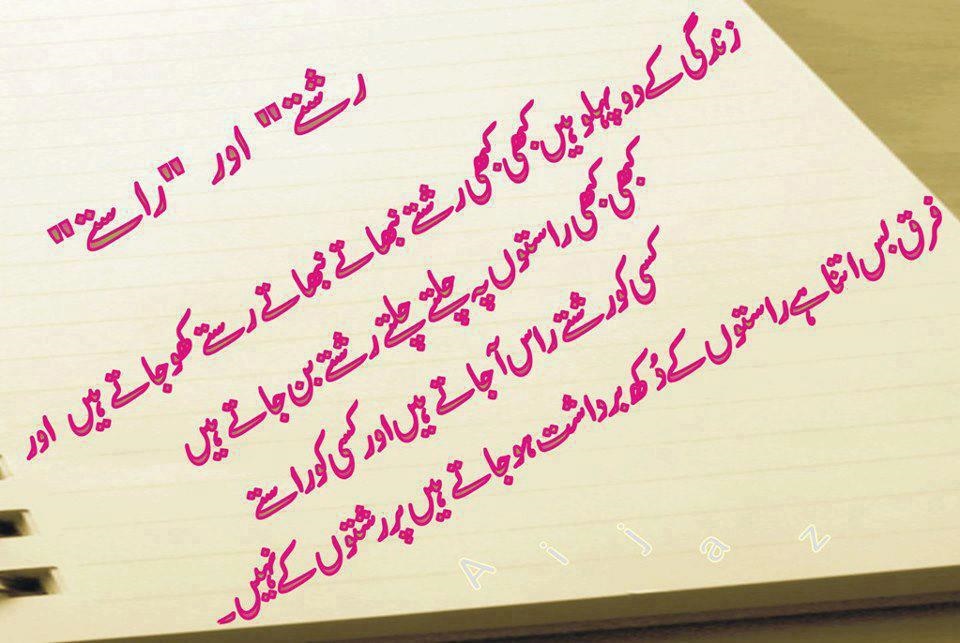 رشتے" اور "راستے"
زندگی کے دو پہلو ہیں کبھی کبھی رشتے نبھاتے نبھاتے رستے کھو جاتے ہیں اور
کبھی کبھی راستوں پہ چلتے چلتے رشتے بن جاتے ہیں
کسی کو رشتے راس آ جاتے ہیں اور کسی کو راستے
فرق بس اتنا ہے راستوں کے دُکھ برداشت ہو جاتے ہیں پر رشتوں کے نہیں۔
Aijaz